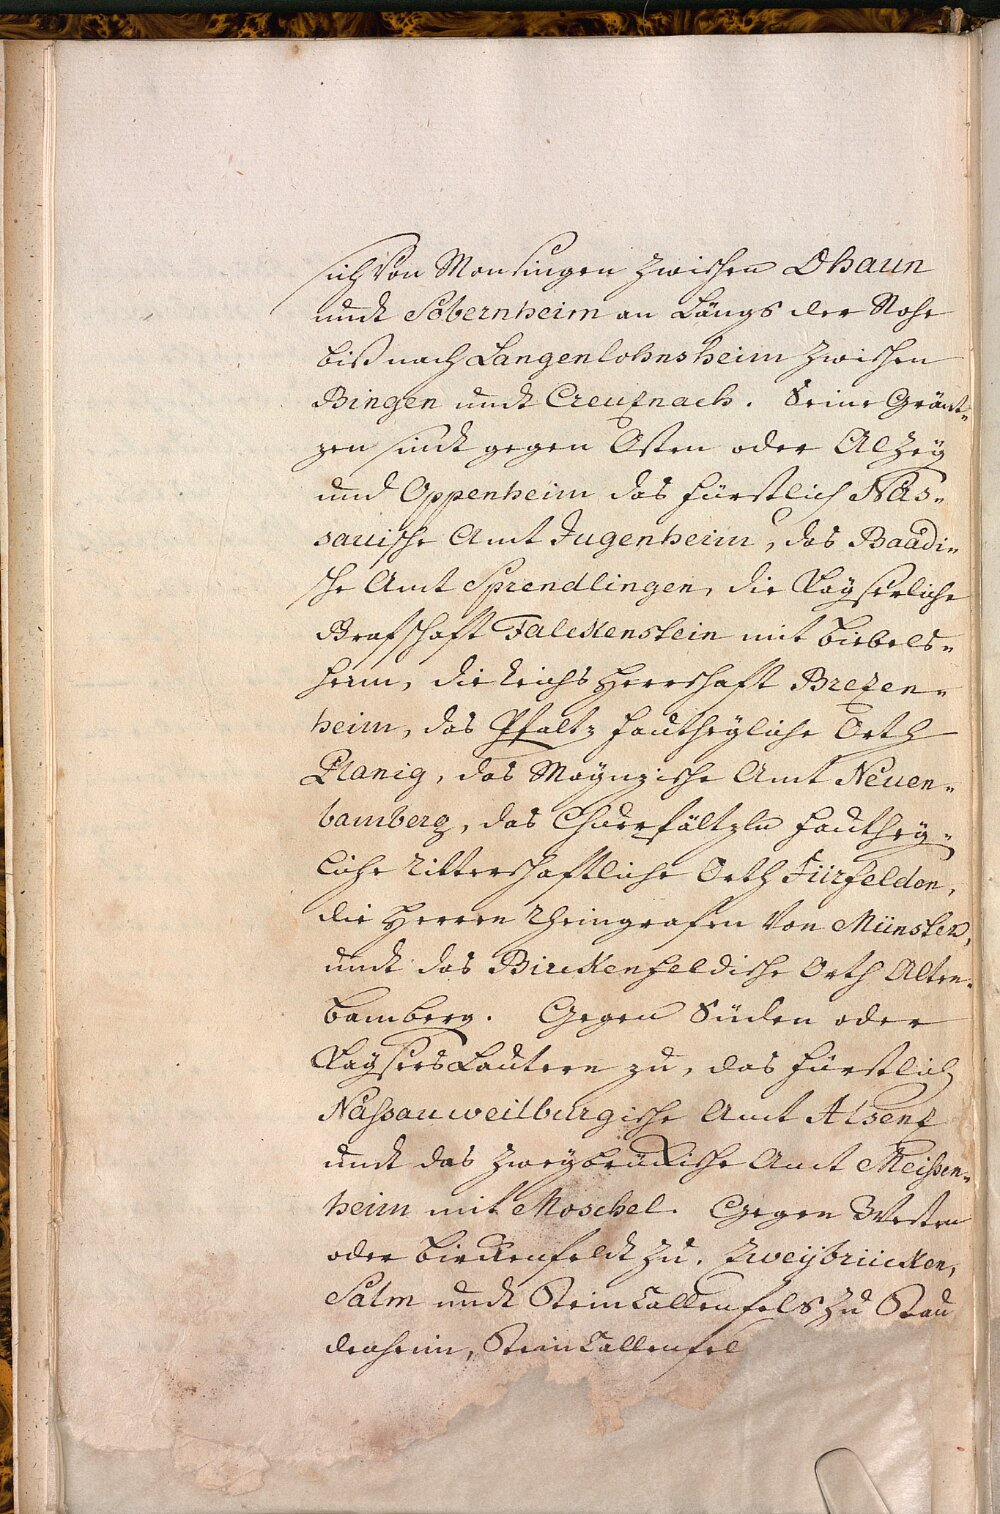 sich von Monsingen zwischen Dhaun
undt Sobernheim an Längs der Nohe
biß nach Langenlohnsheim zwischen
Bingen undt Creuznach. Seine Gränt=
zen sindt gegen Osten oder Alzey
und Oppenheim das Fürstlich Nas=
sauische Amt Jugenheim, das Baadi=
sche Amt Sprendlingen, die Kayserliche
Grafschaft Falckenstein mit Biebels=
heim, die Reichs Herrschaft Brezen=
heim, das Pfaltz Fautheyliche Orth
Planig, das Maynzische Amt Neuen=
bamberg, das Churpfältzln Fauthey=
liche Ritterschaftliche Orth Fürfelden,
die Herren Rheingrafen von Münster,
undt das Birckenfeldische Orth Alten=
bamberg. Gegen Süden oder
Kayserslautern zu, das Fürstlich
Nassauweilburgische Amt Alsenz
undt das Zweybrückische Amt Meissen=
heim mit Moschel. Gegen Westen
oder Birckenfeldt zu, Zweybrücken,
Salm undt Steincallenfels zu Stau
dernheim, Steincallenfel